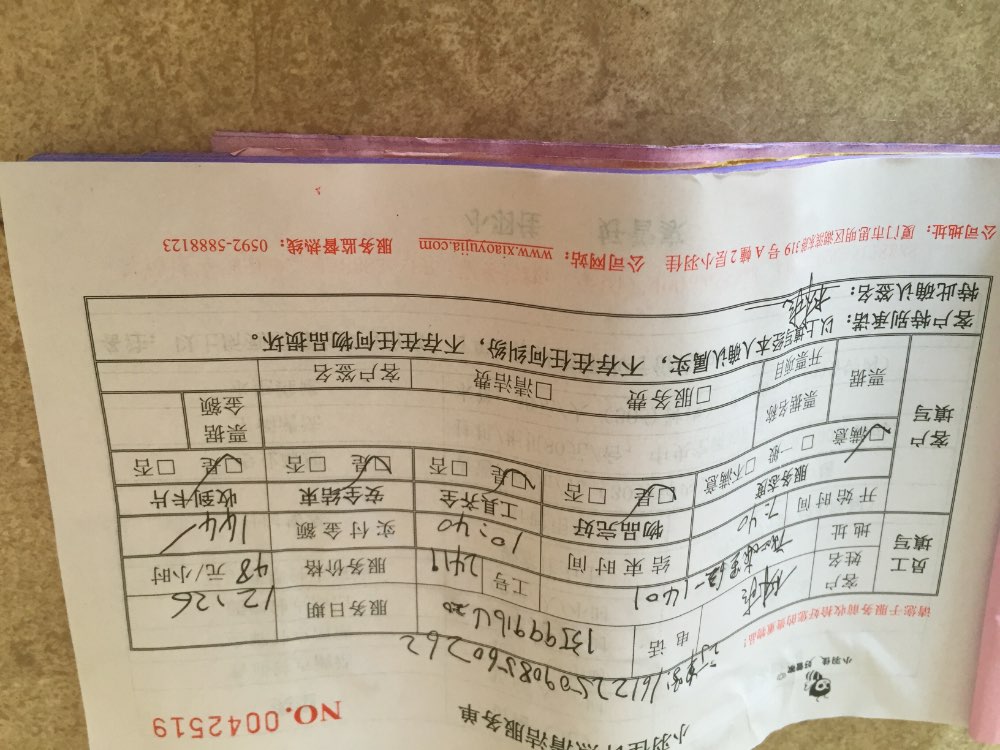 小羽佳计点清洁服务单
NO.0042519
小羽佳 好管家
单号:1612250908560262
请您于服务前收拾好您的贵重物品!
员工填写
客户姓名 电话 服务日期 12.26
地址 1401 工号 2419 服务价格 48 元/小时
开始时间 7:40 结束时间 10:40 实付金额 144
客户填写
服务态度 物品完好 工具齐全 安全结束 收到卡片
☑满意 □一般 □不满意 ☑是 □否 ☑是 □否 ☑是 □否 ☑是 □否
票据 票据名称 票据金额
开票项目 □服务费 □清洁费 客户签名
客户特别承诺:以上填写经本人确认属实,不存在任何纠纷,不存在任何物品损坏。
特此确认签名:
公司地址:厦门市思明区湖滨东路319号A幢2层小羽佳 公司网站:www.xiaoyujia.com 服务监督热线:0592-5888123